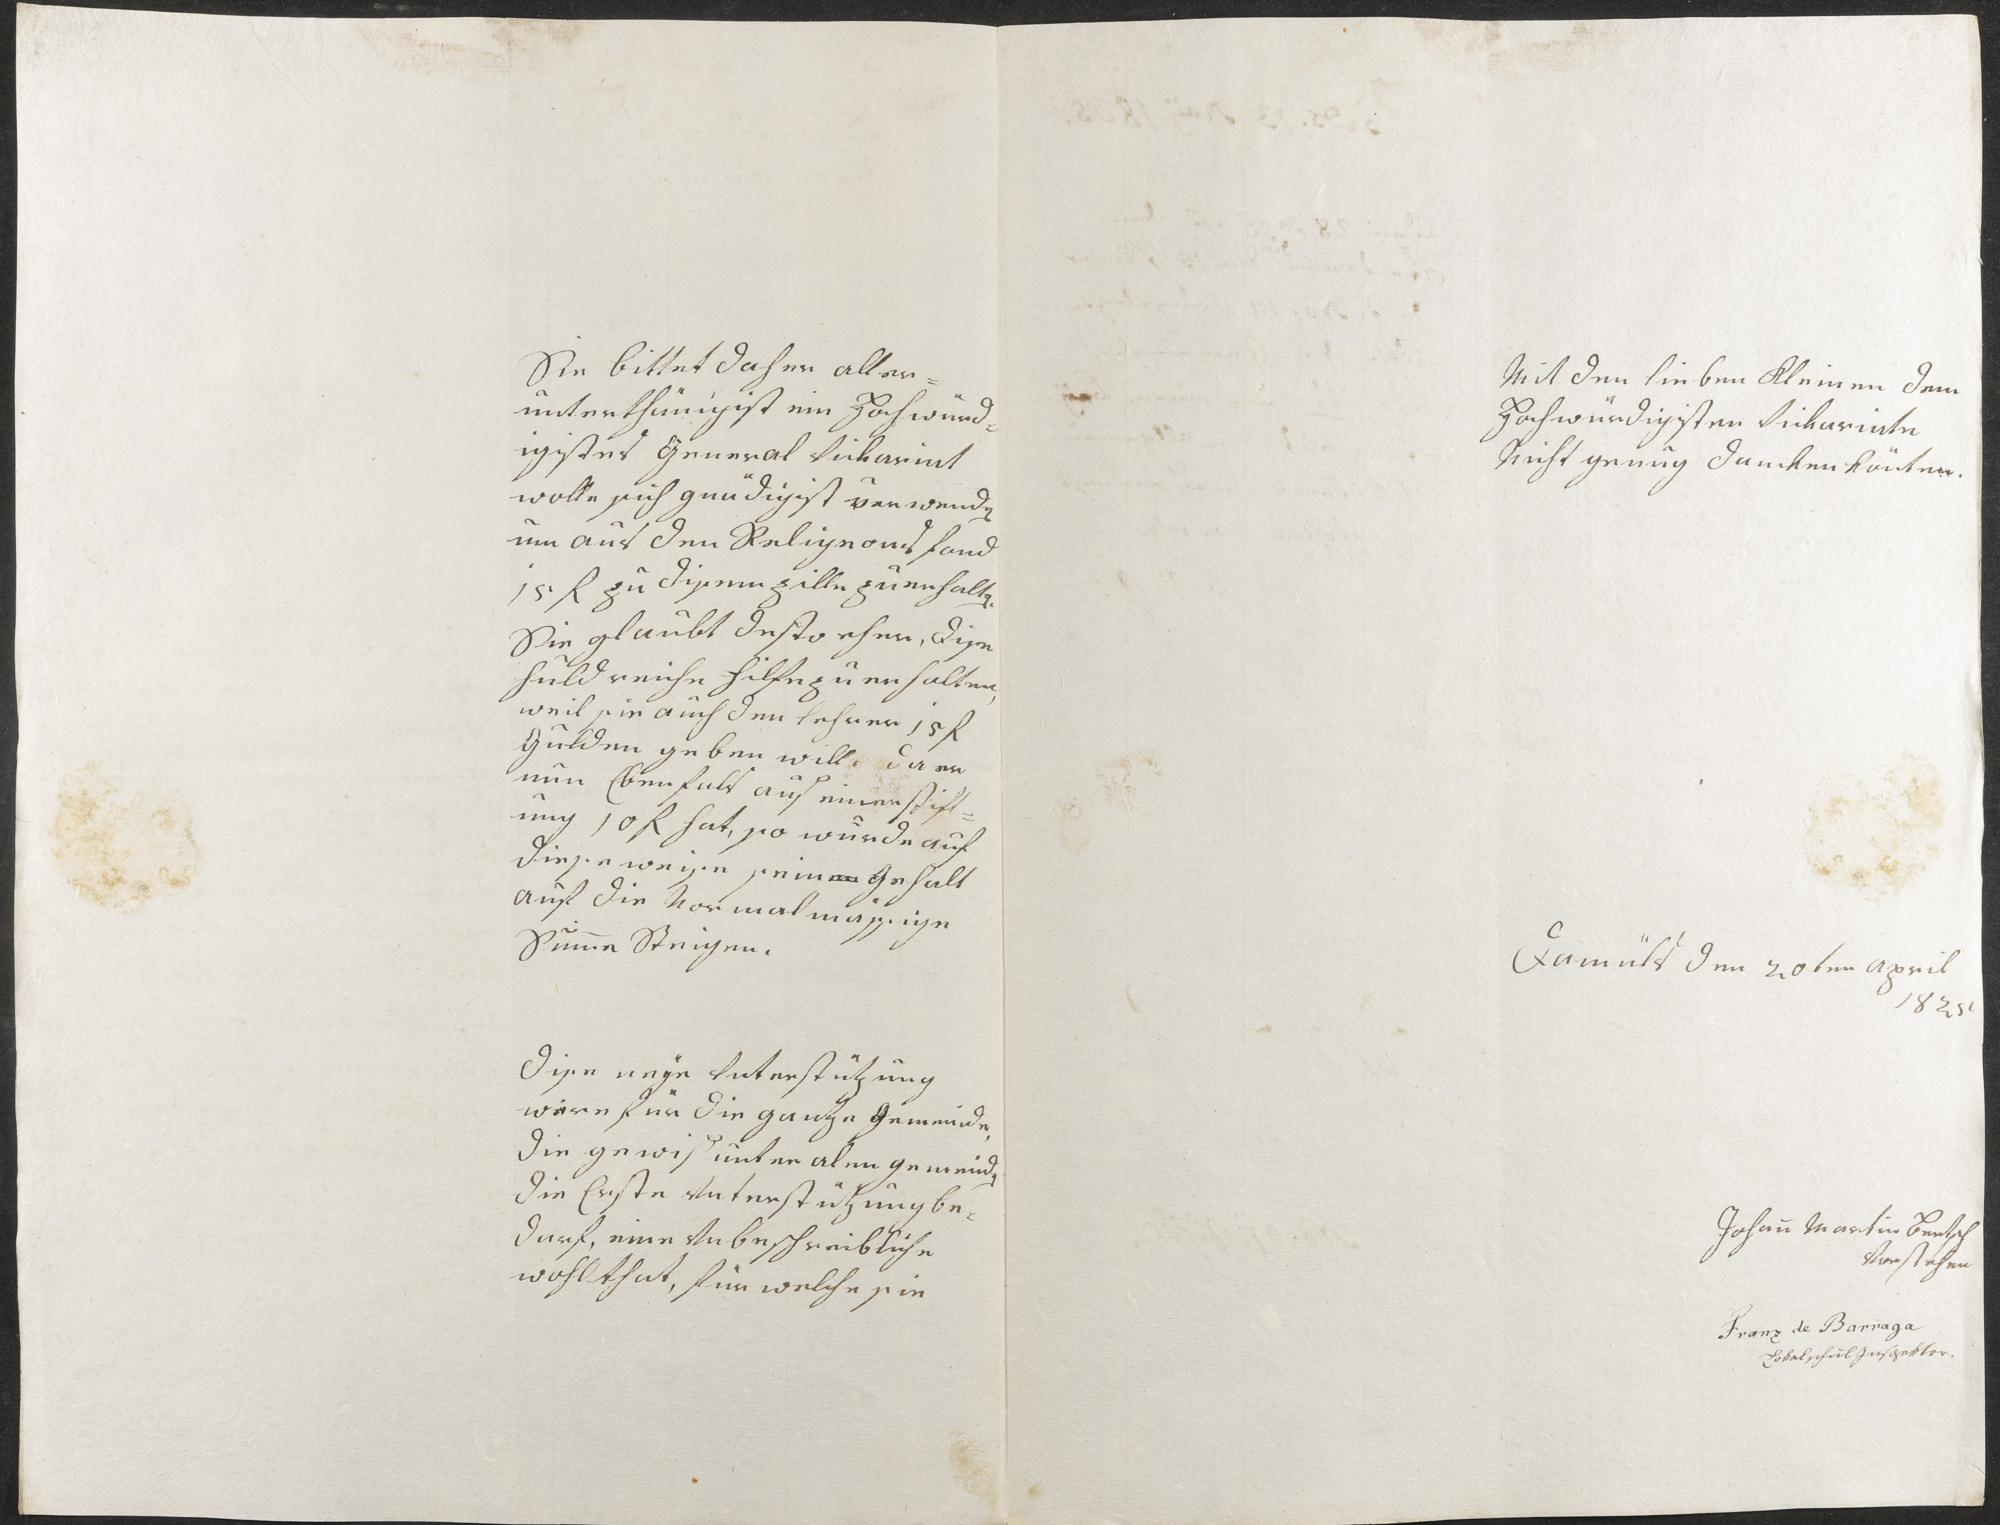 Sie bittet daher aller=
unterthänigist ein Hochwürd=
igistes General Vickariat
wolle sich gnädigist verwend
um aus den Religeons fond
15 f zu disem zille zu erhalt.
Sie glaubt desto eher, dise
huldreiche Hilfe zu erhalten,
weil sie auch den Lehrer 15 f
Gulden geben will. Da er
nun Ebenfals aus einer stift=
ung 10 f hat, so würde auf
diese weise sein Gehalt
auf die Normalmässige
Sum̄e Steigen.
Dise neÿe Unterstützung
were für die gantze Gemeinde,
die gewiß unter alen gemeind
die Erste Unterstützung be=
darf, eine Unbeschreibliche
wohlthat, für welche sie
Mit den lieben Kleinen dem
Hochwürdigisten Vickariate
Nicht genug dancken könten.
Damüls den 20ten April
1825
Johan̄ Martin Bertsch
Vorsteher
Franz de Barraga
Lokalschul Inspektor.